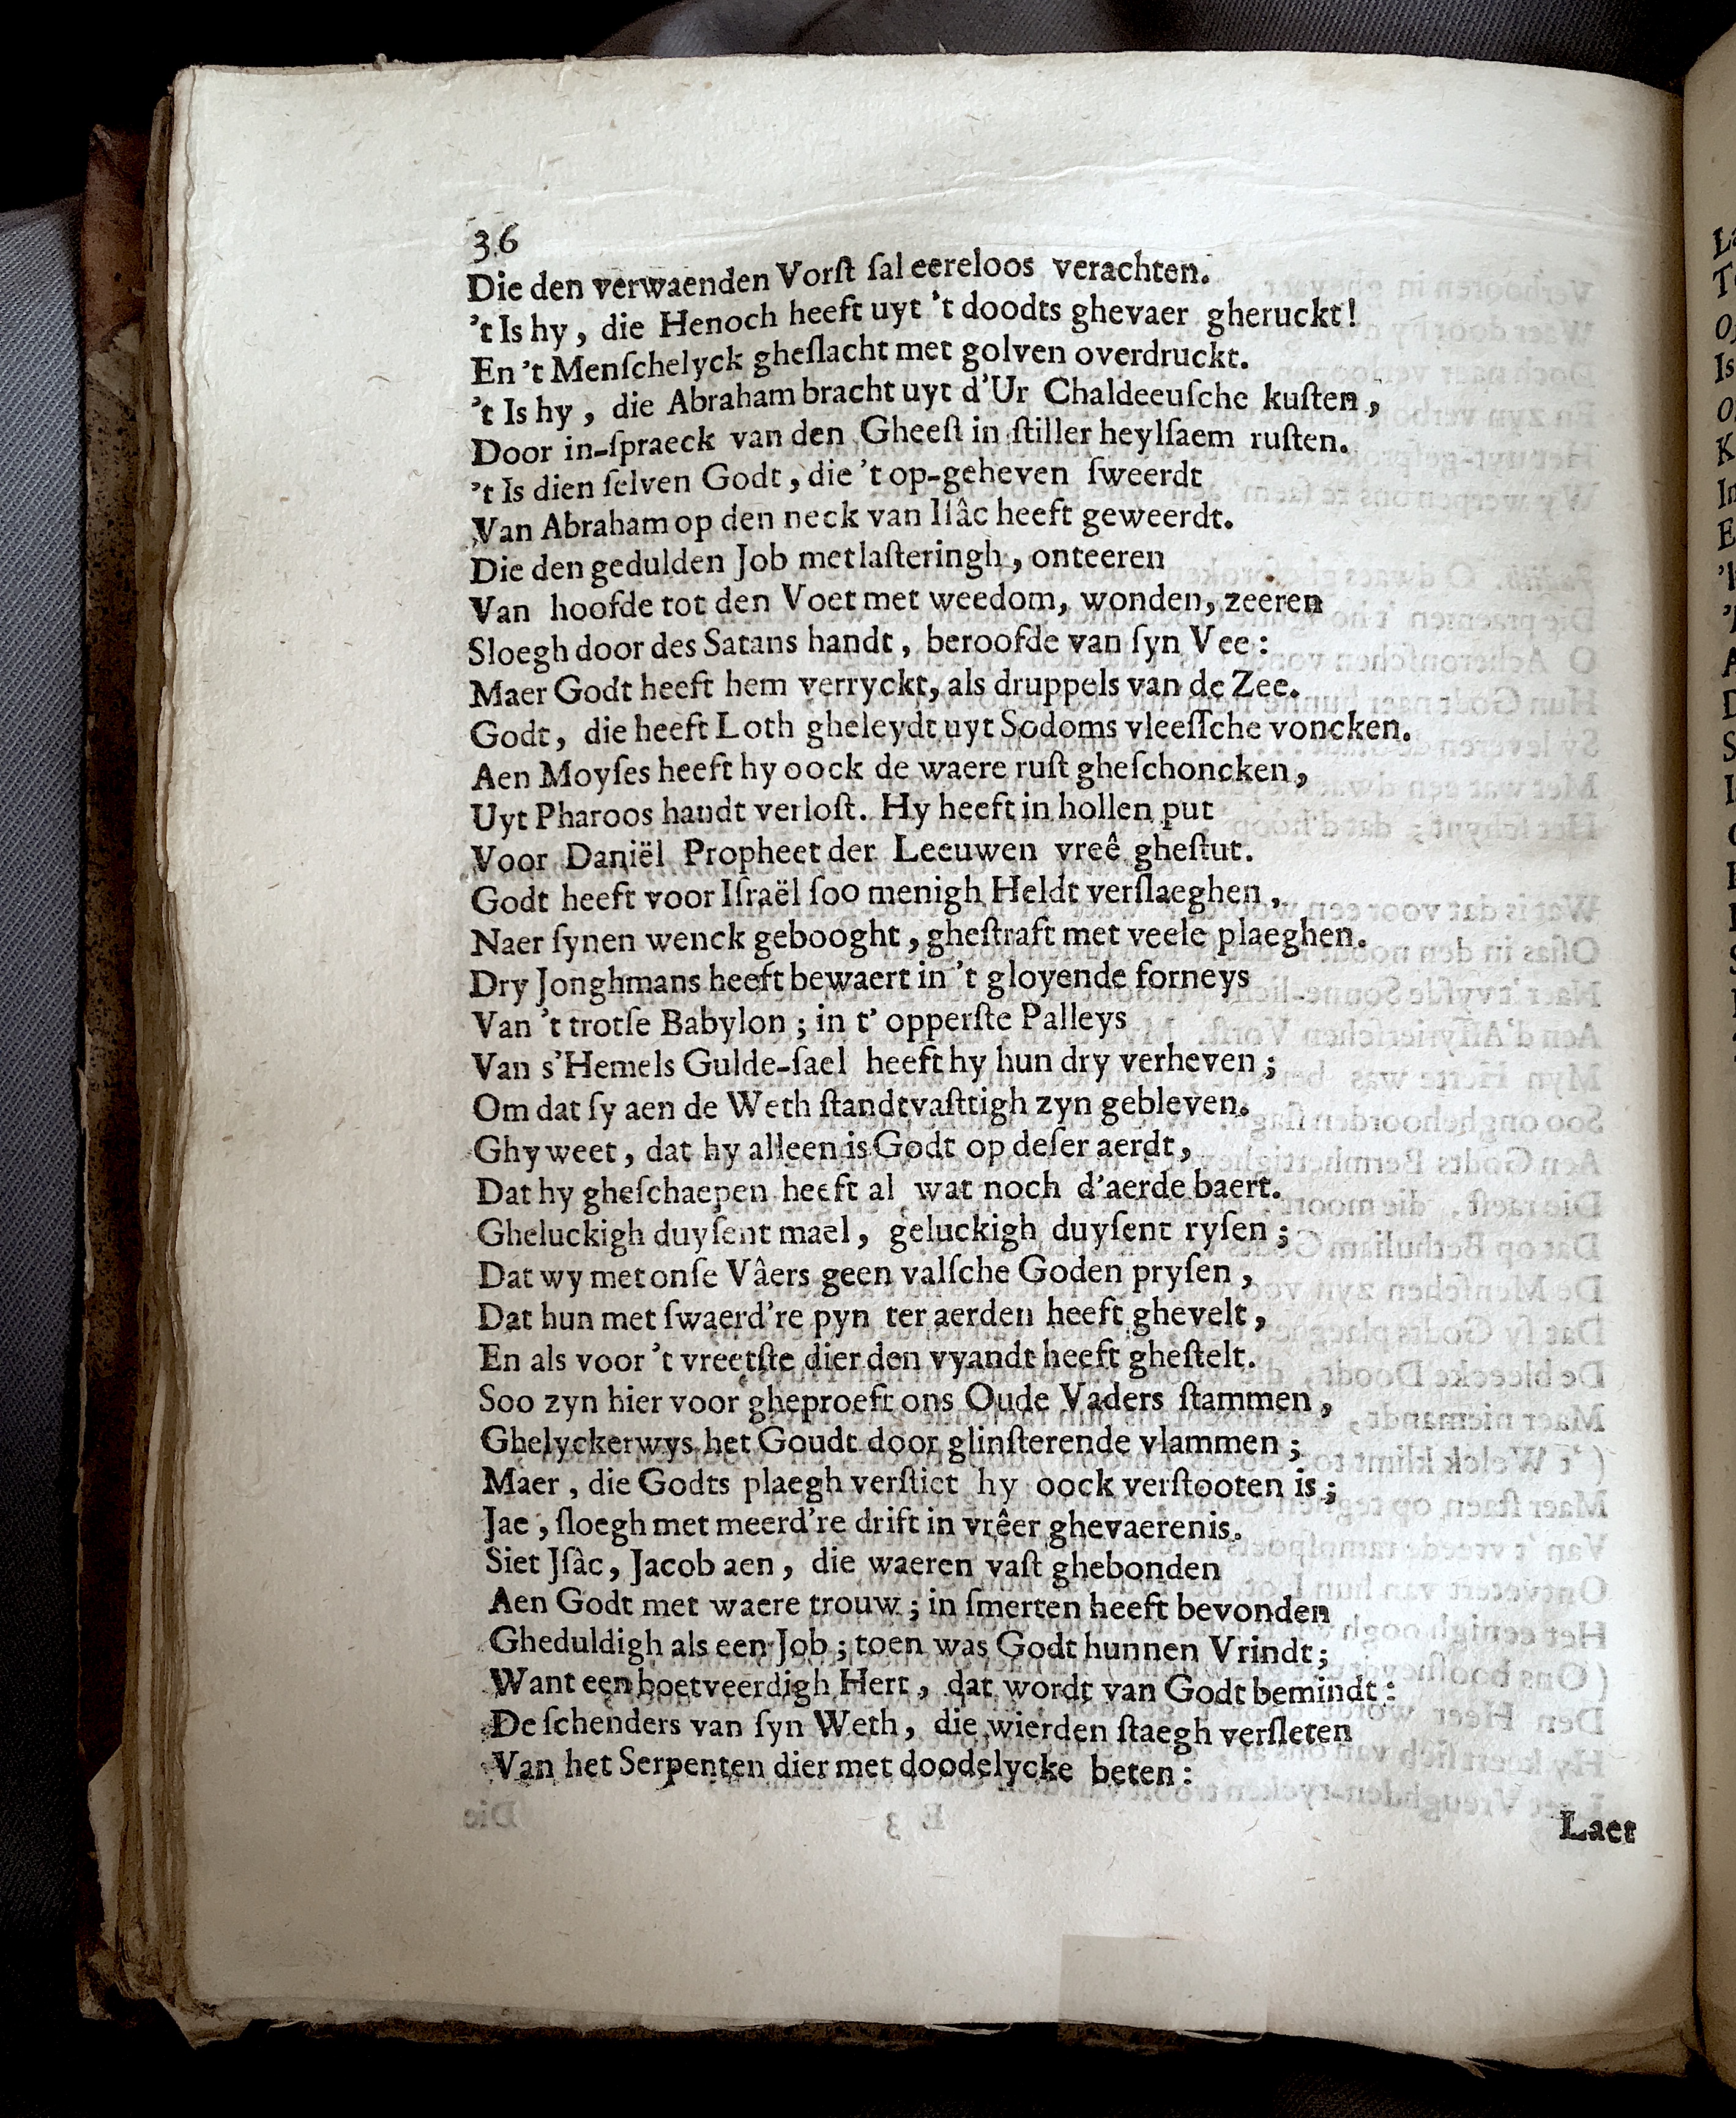 36
Die den verwaenden Vorſt ſal eereloos verachten.
't Is hy, die Henoch heeft uyt 't doodts ghevaer gheruckt!
En 't Menſchelyck gheſlacht met golven overdruckt.
't Is hy, die Abraham bracht uyt d'Ur Chaldeeuſche kuſten,
Door in-ſpraeck van den Gheeſt in ſtiller heylſaem ruſten.
't Is dien ſelven Godt, die 't op-geheven ſweerdt
Van Abraham op den neck van Iſâc heeft geweerdt.
Die den gedulden Job met laſteringh, onteeren
Van hoofde tot den Voet met weedom, wonden, zeeren
Sloegh door des Satans handt, beroofde van ſyn Vee:
Maer Godt heeft hem verryckt, als druppels van de Zee.
Godt, die heeft Loth gheleydt uyt Sodoms vleeſſche voncken.
Aen Moyſes heeft hy oock de waere ruſt gheſchoncken,
Uyt Pharoos handt verloſt. Hy heeft in hollen put
Voor Daniël Propheet der Leeuwen vreê gheſtut.
Godt heeft voor Iſraël ſoo menigh Heldt verſlaeghen,
Naer ſynen wenck gebooght, gheſtraft met veele plaeghen.
Dry Jonghmans heeft bewaert in 't gloyende forneys
Van 't trotſe Babylon; in t' opperſte Palleys
Van s'Hemels Gulde-ſael heeft hy hun dry verheven;
Om dat ſy aen de Weth ſtandtvaſttigh zyn gebleven.
Ghy weet, dat hy alleen is Godt op deſer aerdt,
Dat hy gheſchaepen heeft al wat noch d'aerde baert.
Gheluckigh duyſent mael, geluckigh duyſent ryſen;
Dat wy met onſe Vâers geen valſche Goden pryſen,
Dat hun met ſwaerd're pyn ter aerden heeft ghevelt,
En als voor 't vreetſte dier den vyandt heeft gheſtelt.
Soo zyn hier voor gheproeft ons Oude Vaders ſtammen,
Ghelyckerwys het Goudt door glinſterende vlammen;
Maer, die Godts plaegh verſtiet hy oock verſtooten is;
Jae, ſloegh met meerd're drift in vrêer ghevaerenis.
Siet Jſâc, Jacob aen, die waeren vaſt ghebonden
Aen Godt met waere trouw; in ſmerten heeft bevonden
Gheduldigh als een Job; toen was Godt hunnen Vrindt;
Want een boetveerdigh Hert, dat wordt van Godt bemindt:
De ſchenders van ſyn Weth, die wierden ſtaegh verſleten
Van het Serpenten dier met doodelycke beten:
Laet